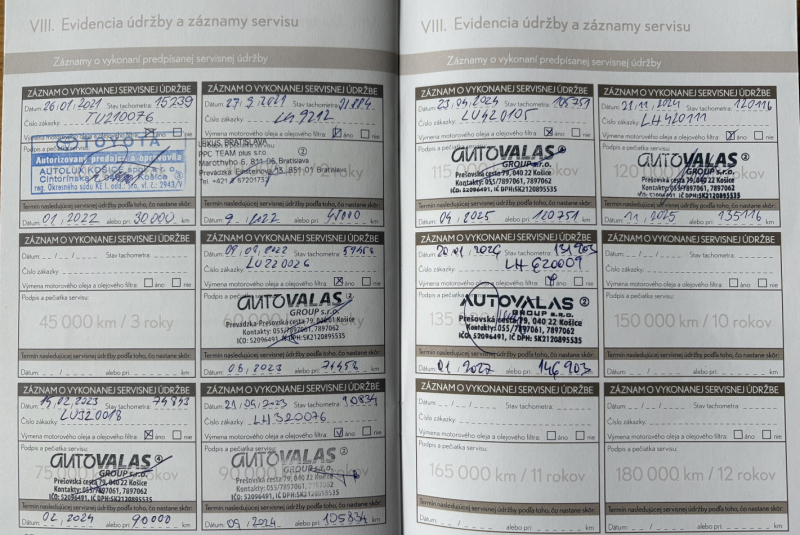 VIII. Evidencia údržby a záznamy servisu
Záznamy o vykonaní predpísanej servisnej údržby
ZÁZNAM O VYKONANEJ SERVISNEJ ÚDRŽBE
Dátum: 26.01.2021 Stav tachometra: 15239
Číslo zákazky: TU210076
Výmena motorového oleja a olejového filtra: áno nie
TOYOTA
Autorizovaný predajca a opravovňa
AUTOLUX KOŠICE spol. s r.o.
reg. Okresného súdu KE I, odd.: Sro, vl. č.: 2943/V
Termín nasledujúcej servisnej údržby podľa toho, čo nastane skôr:
01.2022 alebo pri: 30000 km
ZÁZNAM O VYKONANEJ SERVISNEJ ÚDRŽBE
Dátum: 27.9.2021 Stav tachometra:
Číslo zákazky: LH9212
Výmena motorového oleja a olejového filtra: áno nie
LEXUS BRATISLAVA
PPC TEAM plus s.r.o.
Maróthyho 6, 811 06 Bratislava
Termín nasledujúcej servisnej údržby podľa toho, čo nastane skôr:
9.2022 alebo pri: km
ZÁZNAM O VYKONANEJ SERVISNEJ ÚDRŽBE
Dátum: Stav tachometra: km
Číslo zákazky:
Výmena motorového oleja a olejového filtra: áno nie
Podpis a pečiatka servisu:
45 000 km / 3 roky
Termín nasledujúcej servisnej údržby podľa toho, čo nastane skôr:
Dátum: alebo pri: km
ZÁZNAM O VYKONANEJ SERVISNEJ ÚDRŽBE
Číslo zákazky: LU220026
Výmena motorového oleja a olejového filtra: áno nie
Podpis a pečiatka servisu:
AUTOVALAS 2
GROUP s.r.o.
Prevádzka Prešovská cesta 79, 040 01 Košice
Kontakty: 055/7897061, 7897062
IČO: 52096491, IČ DPH: SK2120895535
Termín nasledujúcej servisnej údržby podľa toho, čo nastane skôr:
alebo pri: 74456 km
ZÁZNAM O VYKONANEJ SERVISNEJ ÚDRŽBE
Dátum: 15.02.2023 Stav tachometra: km
Číslo zákazky: LU320018
Výmena motorového oleja a olejového filtra: áno nie
Podpis a pečiatka servisu:
AUTOVALAS 4
GROUP s.r.o.
Prešovská cesta 79, 040 22 Košice
Kontakty: 055/7897061, 7897062
IČO: 52096491, IČ DPH: SK2120895535
Termín nasledujúcej servisnej údržby podľa toho, čo nastane skôr:
Dátum: 02.2024 alebo pri: 90000 km
ZÁZNAM O VYKONANEJ SERVISNEJ ÚDRŽBE
Dátum: 21.09.2023 Stav tachometra: 90834
Číslo zákazky: LH320076
Výmena motorového oleja a olejového filtra: áno nie
Podpis a pečiatka servisu:
AUTOVALAS
GROUP s.r.o.
Prešovská cesta 79, 040 22 Košice
Kontakty: 055/7897061, 7897062
IČO: 52096491, IČ DPH: SK2120895535
Termín nasledujúcej servisnej údržby podľa toho, čo nastane skôr:
Dátum: 09.2024 alebo pri: 105834 km
VIII. Evidencia údržby a záznamy servisu
Záznamy o vykonaní predpísanej servisnej údržby
ZÁZNAM O VYKONANEJ SERVISNEJ ÚDRŽBE
Dátum: 23.04.2024 Stav tachometra: 105751
Číslo zákazky: LU420105
Výmena motorového oleja a olejového filtra: áno nie
AUTOVALAS 2
GROUP s.r.o.
Prešovská cesta 79, 040 22 Košice
Kontakty: 055/7897061, 7897062
IČO: 52096491, IČ DPH: SK2120895535
Termín nasledujúcej servisnej údržby podľa toho, čo nastane skôr:
Dátum: 04.2025 alebo pri: 120751 km
ZÁZNAM O VYKONANEJ SERVISNEJ ÚDRŽBE
Dátum: 21.11.2024 Stav tachometra: 120116
Číslo zákazky: LH420111
Výmena motorového oleja a olejového filtra: áno nie
AUTOVALAS 2
GROUP s.r.o.
Prešovská cesta 79, 040 22 Košice
Kontakty: 055/7897061, 7897062
IČO: 52096491, IČ DPH: SK2120895535
Termín nasledujúcej servisnej údržby podľa toho, čo nastane skôr:
Dátum: 11.2025 alebo pri: 135116 km
ZÁZNAM O VYKONANEJ SERVISNEJ ÚDRŽBE
Dátum: 20.01.2026 Stav tachometra: 131903
Číslo zákazky: LH620009
Výmena motorového oleja a olejového filtra: nie
Podpis a pečiatka servisu:
AUTOVALAS 2
GROUP s.r.o.
Prešovská cesta 79, 040 22 Košice
Kontakty: 055/7897061, 7897062
IČO: 52096491, IČ DPH: SK2120895535
Termín nasledujúcej servisnej údržby podľa toho, čo nastane skôr:
Dátum: 01.2027 alebo pri: 146903 km
ZÁZNAM O VYKONANEJ SERVISNEJ ÚDRŽBE
Dátum: Stav tachometra: km
Číslo zákazky:
Výmena motorového oleja a olejového filtra: áno nie
Podpis a pečiatka servisu:
150 000 km / 10 rokov
Termín nasledujúcej servisnej údržby podľa toho, čo nastane skôr:
Dátum: alebo pri: km
ZÁZNAM O VYKONANEJ SERVISNEJ ÚDRŽBE
Dátum: Stav tachometra: km
Číslo zákazky:
Výmena motorového oleja a olejového filtra: áno nie
Podpis a pečiatka servisu:
165 000 km / 11 rokov
Termín nasledujúcej servisnej údržby podľa toho, čo nastane skôr:
Dátum: alebo pri: km
ZÁZNAM O VYKONANEJ SERVISNEJ ÚDRŽBE
Dátum: Stav tachometra: km
Číslo zákazky:
Výmena motorového oleja a olejového filtra: áno nie
Podpis a pečiatka servisu:
180 000 km / 12 rokov
Termín nasledujúcej servisnej údržby podľa toho, čo nastane skôr:
Dátum: alebo pri: km